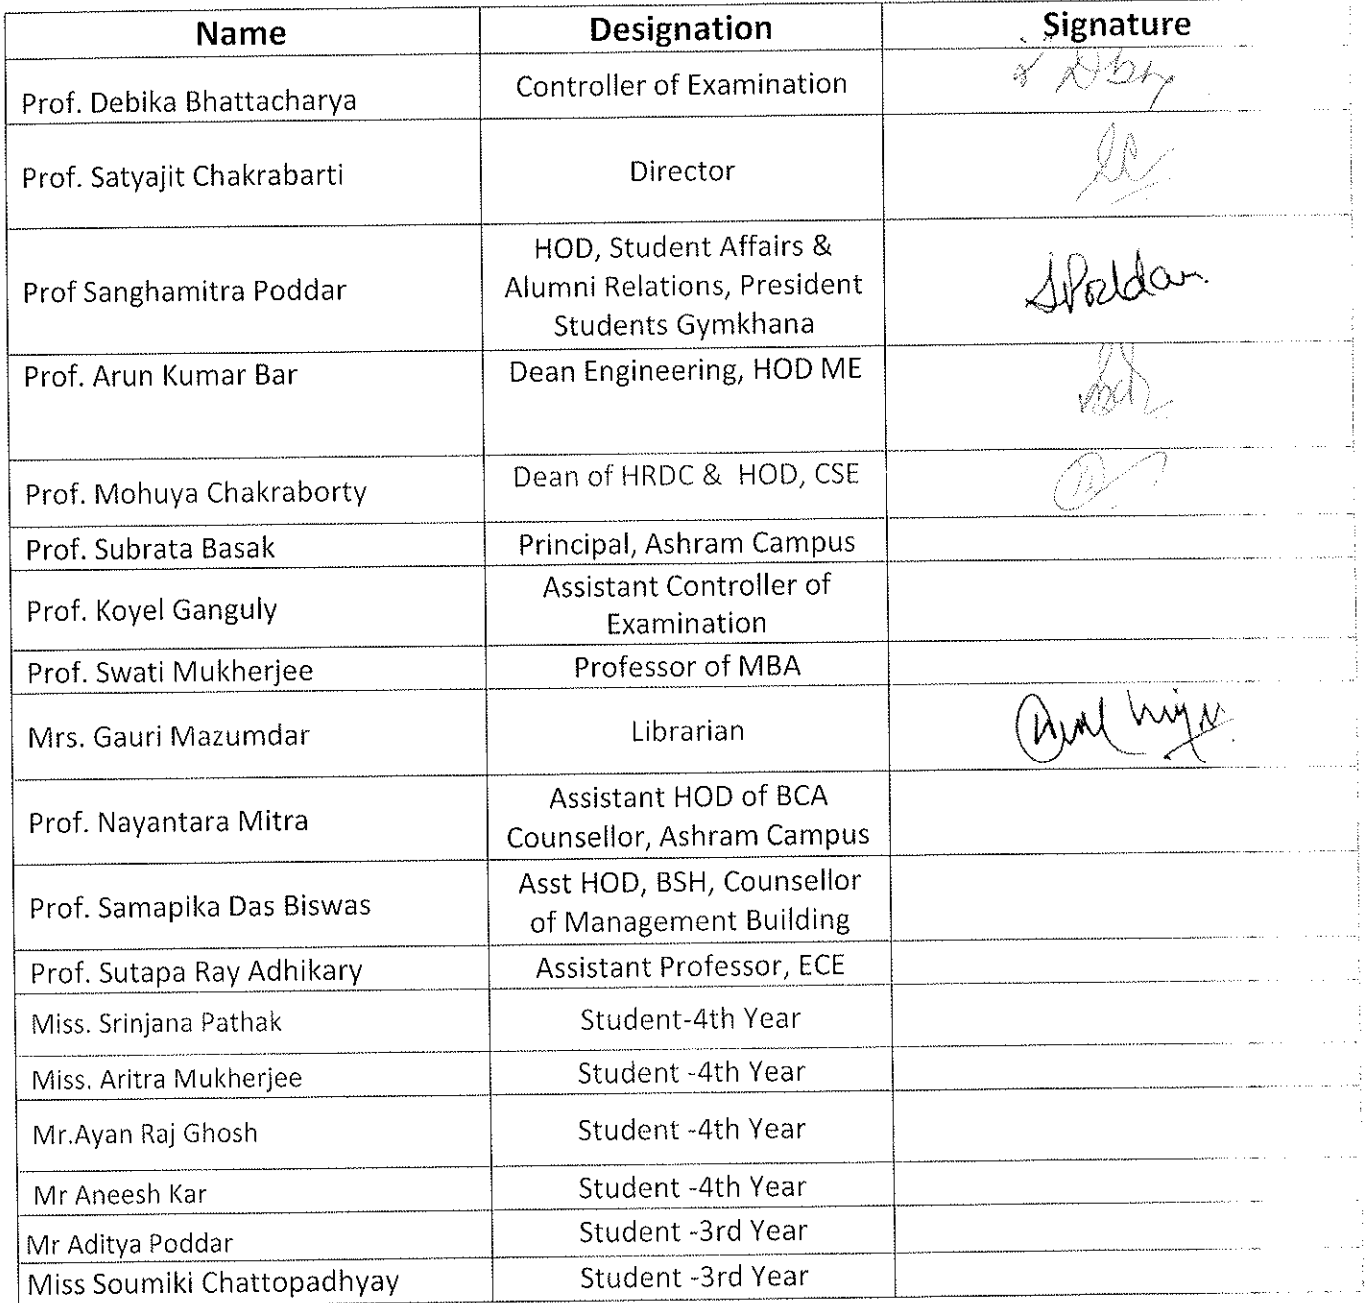 Name Designation Signature
Prof. Debika Bhattacharya Controller of Examination
Prof. Satyajit Chakrabarti Director
Prof Sanghamitra Poddar HOD, Student Affairs &
Alumni Relations, President
Students Gymkhana
SPoddar
Prof. Arun Kumar Bar Dean Engineering, HOD ME
Prof. Mohuya Chakraborty Dean of HRDC & HOD, CSE
Prof. Subrata Basak Principal, Ashram Campus
Prof. Koyel Ganguly Assistant Controller of
Examination
Prof. Swati Mukherjee Professor of MBA
Mrs. Gauri Mazumdar Librarian
Prof. Nayantara Mitra Assistant HOD of BCA
Counsellor, Ashram Campus
Prof. Samapika Das Biswas Asst HOD, BSH, Counsellor
of Management Building
Prof. Sutapa Ray Adhikary Assistant Professor, ECE
Miss. Srinjana Pathak Student-4th Year
Miss. Aritra Mukherjee Student -4th Year
Mr.Ayan Raj Ghosh Student -4th Year
Mr Aneesh Kar Student -4th Year
Mr Aditya Poddar Student -3rd Year
Miss Soumiki Chattopadhyay Student -3rd Year